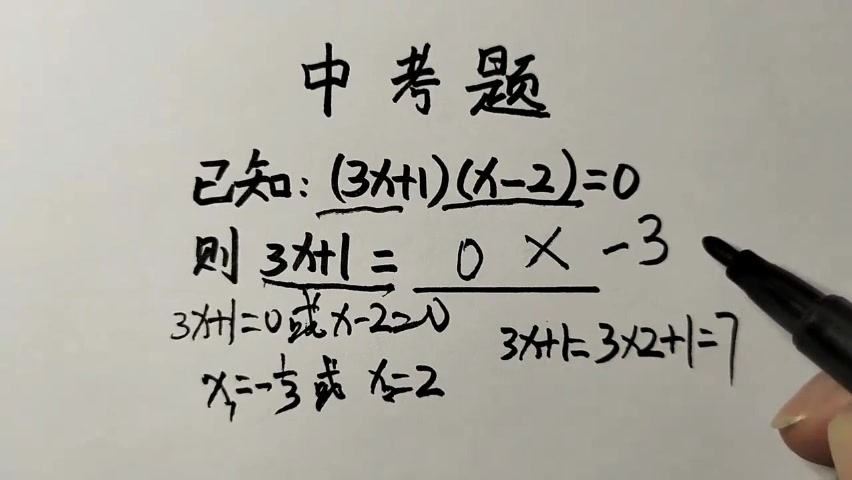 中考题
已知:(3x+1)(x-2)=0
则 3x+1= 0 × -3
3x+1=0或x-2=0
3x+1=3×2+1=7
x₁=-1/3 或 x₂=2